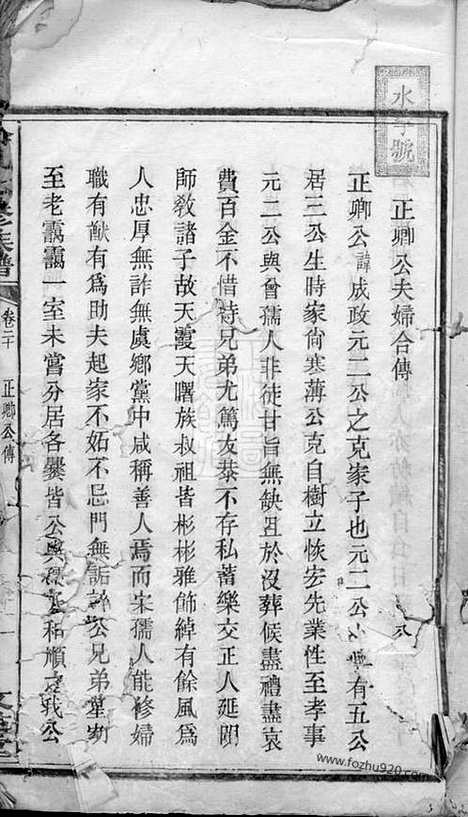 水字號
正卿公夫婦合傳
正卿公諱成政元二公之克家子也元二公 有五公
居三公生時家尙寒薄公克自樹立恢宏先業性至孝事
元二公與曾孺人非徒甘旨無缺且於沒葬候盡禮盡哀
費百金不惜待兄弟尤篤友恭不存私蓄樂交正人延明
師敎諸子故天霞天曙族叔祖皆彬彬雅飾綽有餘風爲
人忠厚無詐無虞鄉黨中咸稱善人焉而宋孺人能修婦
職有猷有爲助夫起家不妬不忌門無詬誶公兄弟
至老靄靄一室未嘗分居各爨皆公與 和順 公
族譜
卷二十
正卿公傳
www.fozhu920.com